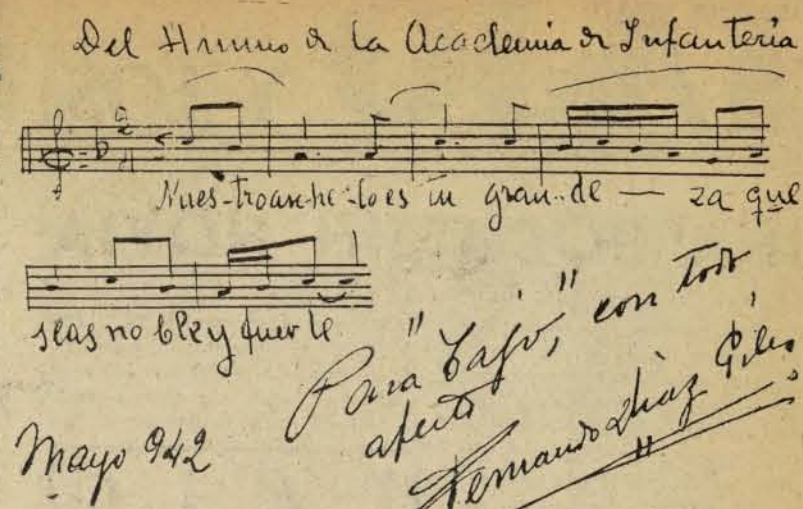 Del Himno de la Academia de Infanteria
Nues-troan-he-loes tu gran-de — za que
seas no bley fuer te
Para "Tajo", con todo
afecto
Fernando Diaz Giles
Mayo 942